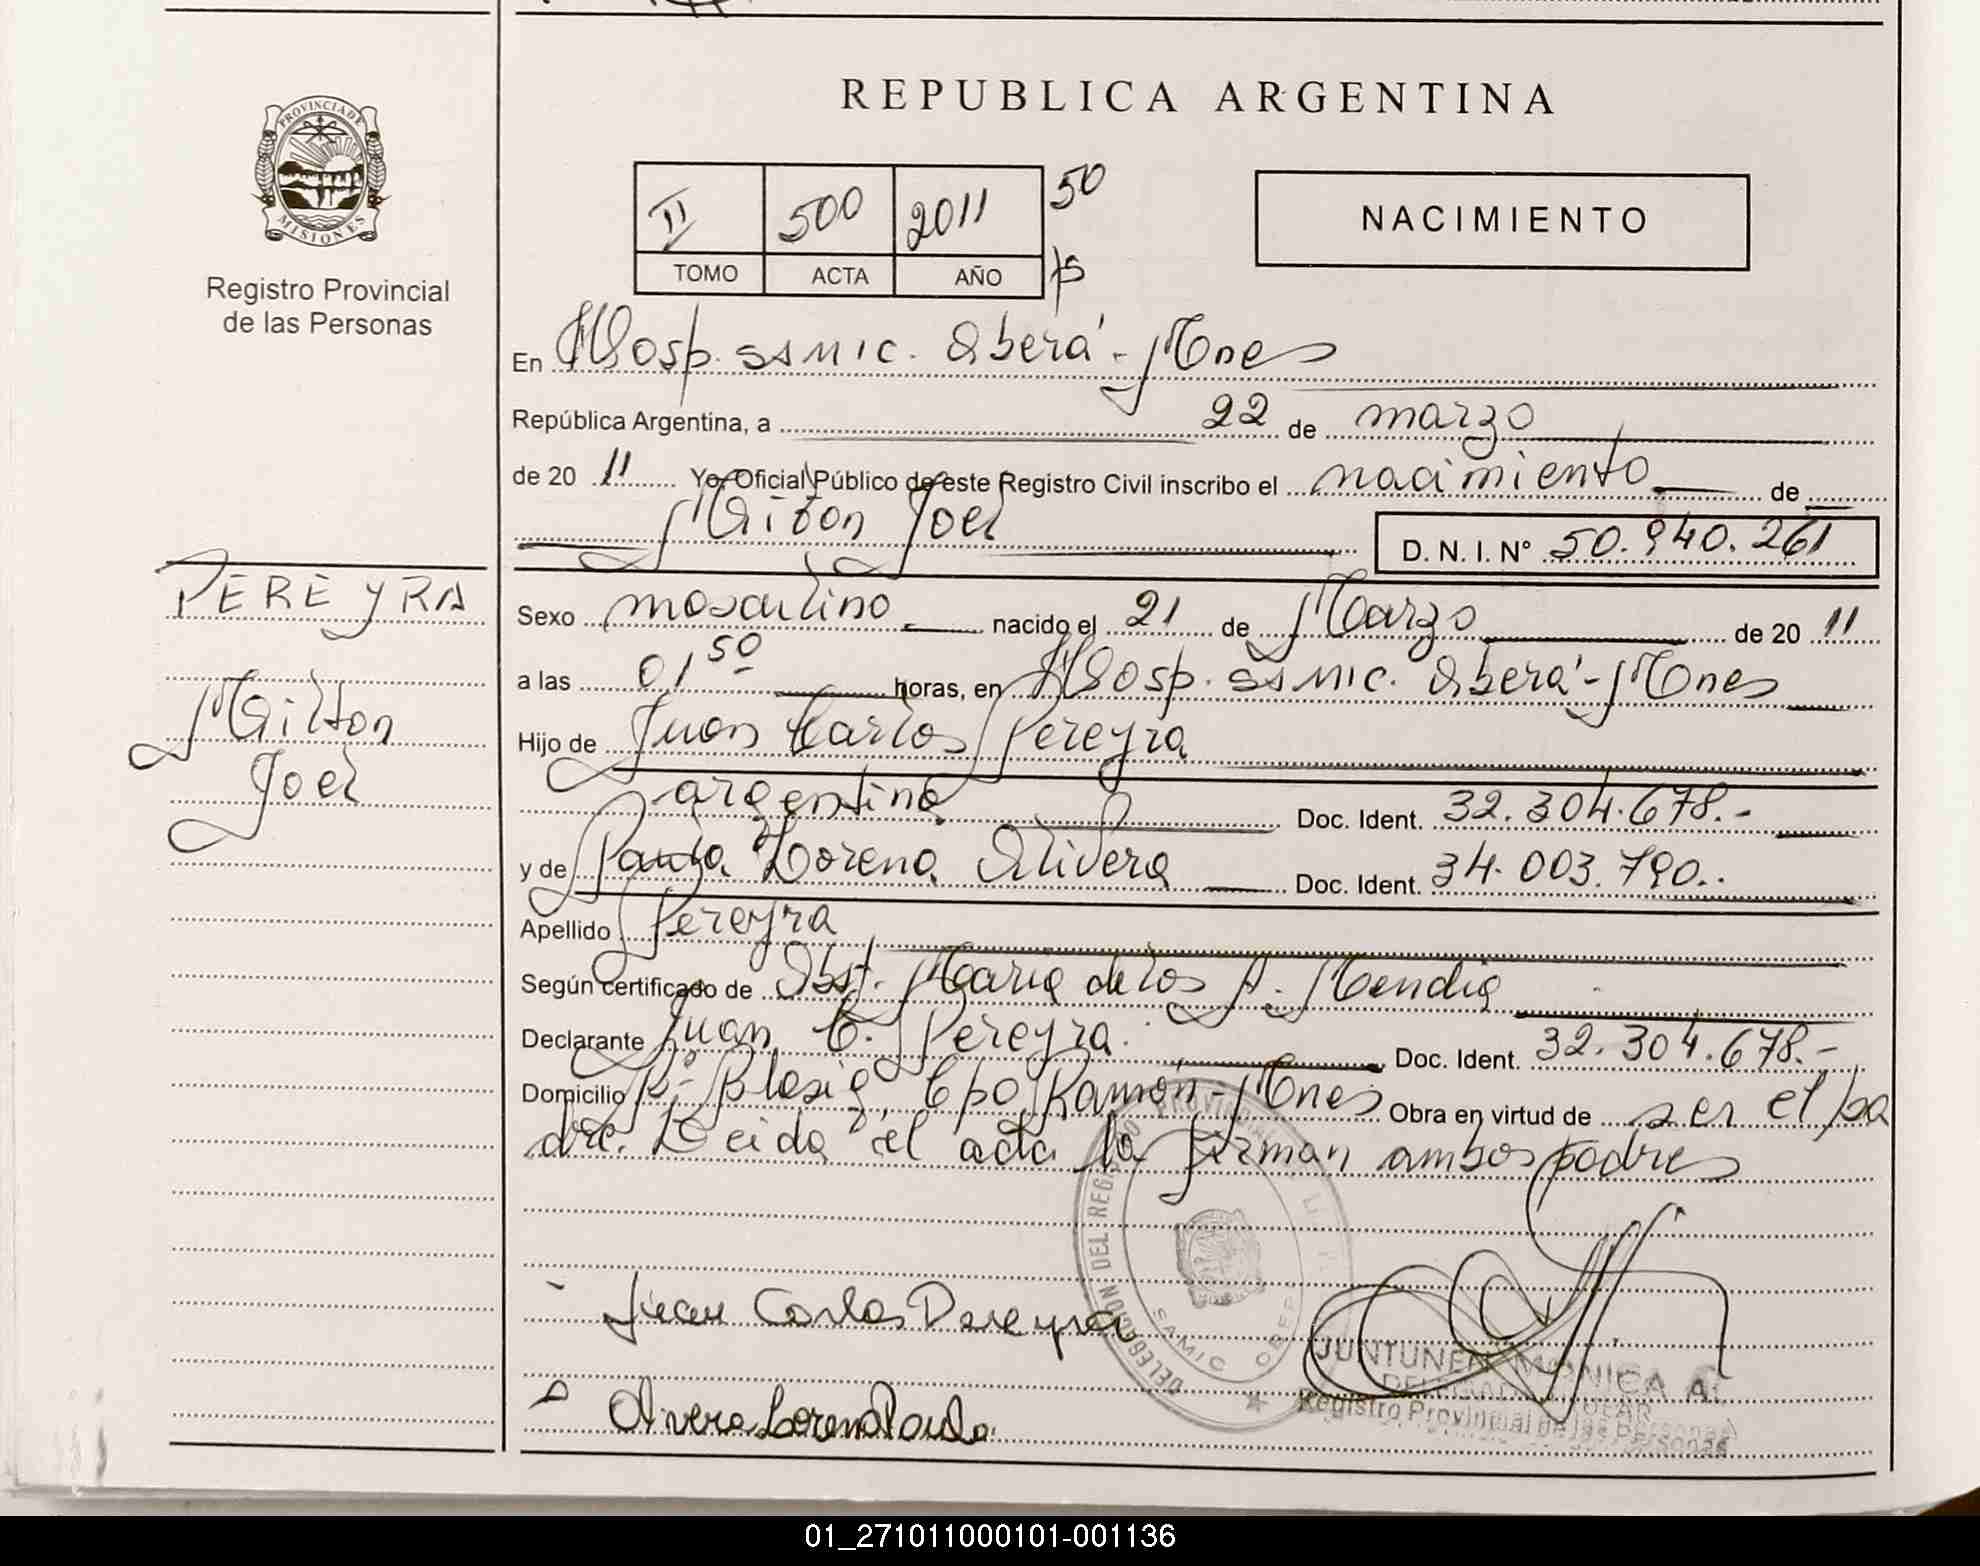 REPUBLICA ARGENTINA
PROVINCIA DE
MISIONES
Registro Provincial
de las Personas
II 500 2011 50
TOMO ACTA AÑO
NACIMIENTO
En Hosp. SAMIC. Oberá - Mnes
República Argentina, a 22 de marzo
de 20 11 Yo, Oficial Público de este Registro Civil inscribo el nacimiento de
Milton Joel
D. N. I. N° 50.940.261
PEREYRA
Milton
Joel
Sexo masculino nacido el 21 de Marzo de 20 11
a las 01 50 horas, en Hosp. SAMIC. Oberá - Mnes
Hijo de Juan Carlos Pereyra
argentino Doc. Ident. 32.304.678.-
y de Paula Lorena Olivera Doc. Ident. 34.003.790..
Apellido Pereyra
Según certificado de Obst. Maria de los A. Mendig
Declarante Juan C. Pereyra. Doc. Ident. 32.304.678.-
Domicilio Bº Blasig, Cpo Ramón - Mnes Obra en virtud de ser el pa
dre. Leida el acta la firman ambos padres
Juan Carlos Pereyra
Olivera Lorena Paula
DELEGACION DEL REG PROVINCIAL
SAMIC OBER
JUNTUNEN MONICA A.
Registro Provincial de las Personas
01_271011000101-001136